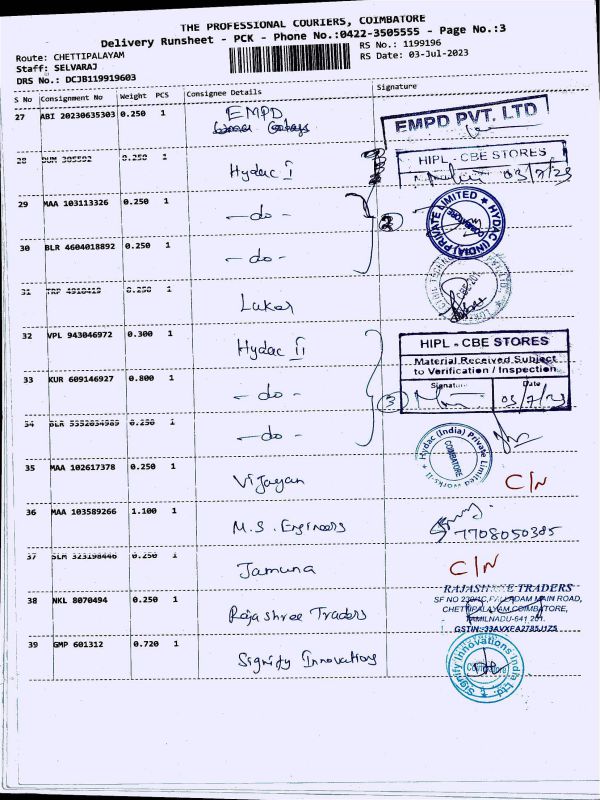 THE PROFESSIONAL COURIERS, COIMBATORE
Delivery Runsheet - PCK - Phone No.:0422-3505555 - Page No.:3
Route: CHETTIPALAYAM
Staff: SELVARAJ
DRS No.: DCJB119919603
RS No.: 1199196
RS Date: 03-Jul-2023
S No Consignment No Weight PCS Consignee Details Signature
27 ABI 20230635303 0.250 1 EMPD
EMPD PVT. LTD
28 DUM 305592 0.250 1 Hydac II
HIPL - CBE STORES
03/7/23
29 MAA 103113326 0.250 1 -do-
2
HYDAC (INDIA) PRIVATE LIMITED
COIMBATORE
30 BLR 4604018892 0.250 1 -do-
31 TRP 4910419 0.250 1 Lukas
32 VPL 943046972 0.300 1 Hydac II
HIPL - CBE STORES
Material Received Subject
to Verification / Inspection
Signature Date
03/7/23
33 KUR 609146927 0.800 1 -do-
3
34 BLR 5552034989 0.250 1 -do-
Hydac (India) Private Limited Works-II
COIMBATORE
35 MAA 102617378 0.250 1 Vijayan C/N
36 MAA 103589266 1.100 1 M.S. Engineers
7708050385
37 SLM 323198446 0.250 1 Jamuna C/N
38 NKL 8070494 0.250 1 Rajashree Traders
RAJASHREE TRADERS
SF NO 230/1C, PALLADAM MAIN ROAD,
CHETTIPALAYAM, COIMBATORE,
TAMILNADU-641 201.
39 GMP 601312 0.720 1 Signify Innovations
Signify Innovations India Ltd.
Coimbatore